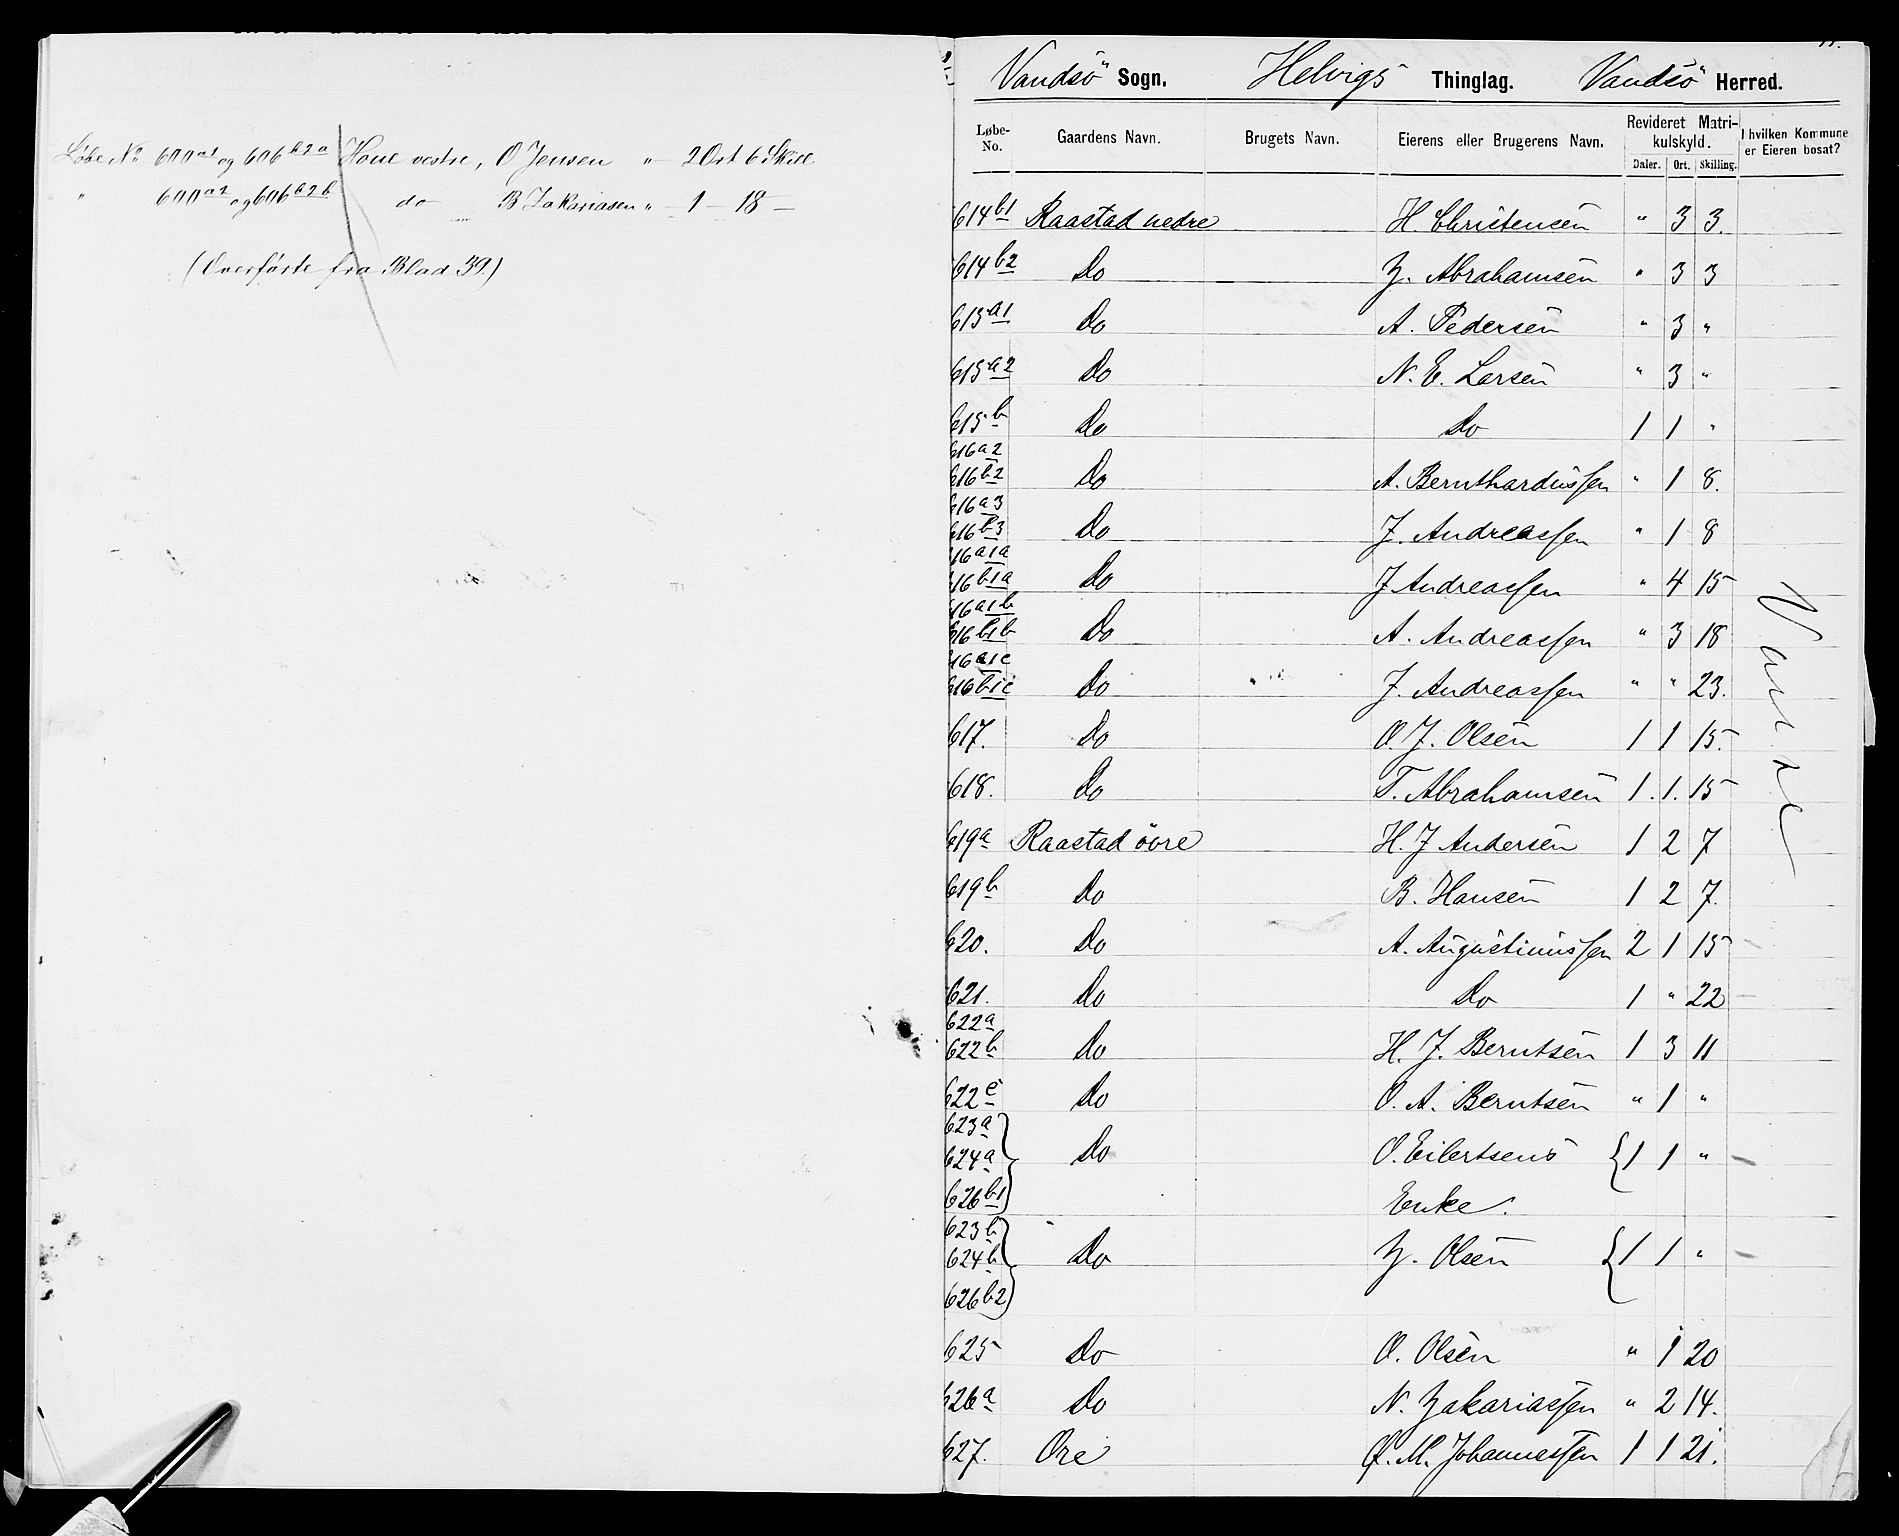 Løbe No 600a1 og 606b2a Houe vestre, O Jensen " 2 Ort 6 Skill.
" 600a2 og 606b2b do B Zakariasen " 1 – 18 –
(Overførte fra Blad 39.)
Vandsö Sogn. Helvigs Thinglag. Vandsö Herred.
Løbe-No. Gaardens Navn. Brugets Navn. Eierens eller Brugerens Navn. Revideret Matrikulskyld. I hvilken Kommune er Eieren bosat?
Daler. Ort. Skilling.
614b1 Raastad nedre H. Christensen " 3 3.
614b2 Do Z. Abrahamsen " 3 3
615a1 Do A. Pedersen " 3 "
615a2 Do N. E. Larsen " 3 "
615b Do Do 1 1 "
616a2
616b2 Do A. Bernthardussen " 1 8.
616a3
616b3 Do J. Andreassen " 1 8
616a1a
616b1a Do J Andreassen " 4 15
616a1b
616b1b Do A. Andreassen " 3 18
616a1c
616b1c Do J. Andreassen " " 23.
617. Do O. J. Olsen 1 1 15.
618. Do T. Abrahamsen 1. 1. 15
619a Raastad övre H. J Andersen 1 2 7
619b Do B. Hansen 1 2 7.
620. Do A. Augustinussen 2 1 15
621. Do Do 1 " 22
622a
622b Do H. J. Berntsen 1 3 11
622c Do O. A. Berntsen " 1 "
623a
624a Do O. Eilertsens 1 1 "
626b1 Enke.
623b
624b Do Z. Olsen 1 1 "
626b2
625 Do O. Olsen " 1 20
626a Do N. Zakariassen " 2 14.
627. Ore O. M. Johannessen 1 1 21.